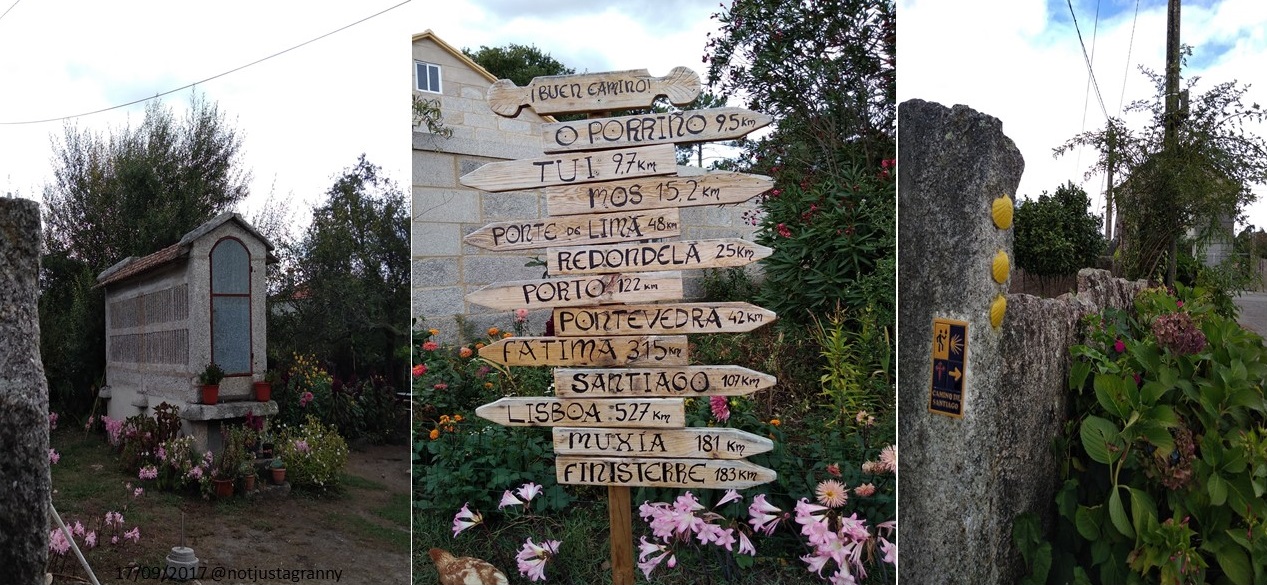 17/09/2017 @notjustagranny
¡BUEN CAMINO!
O PORRIÑO 9,5 km
TUI 9,7 km
MOS 15,2 km
PONTE DE LIMA 48 km
REDONDELA 25 km
PORTO 122 km
PONTEVEDRA 42 km
FATIMA 315 km
SANTIAGO 107 km
LISBOA 527 km
MUXIA 181 km
FINISTERRE 183 km
CAMINO DE
SANTIAGO